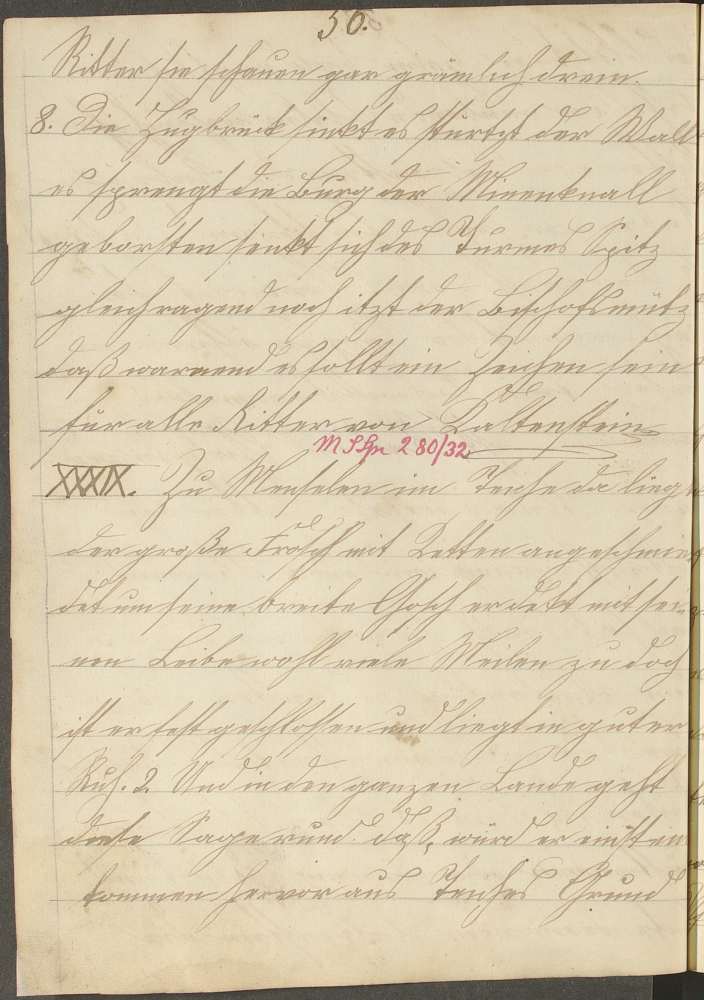 56.
Ritter sie schauen gar grämlich drein.
8. Die Zugbrück sinkt es stürtzt der Wall
es sprengt die Burg der Minenknall
geborsten senkt sich des Turmes Spitz
gleich ragend noch itzt der Bischofsmütz
daß warnend es sollt ein Zeichen sein
für alle Ritter von Daltenstein
M S Spr 280/32
XXXIX. Zu Menselen im Teiche da liegt
der große Frosch mit Ketten angeschmie
det um seine breite Gosch er dekt mit sei-
nen Leibe wohl viele Meilen zu doch
ist er fest geschlossen und liegt in guter
Ruh. 2. Und in den ganzen Lande geht
diese Sage rund daß, würd er einsten
kommen hervor aus Teiches Grund